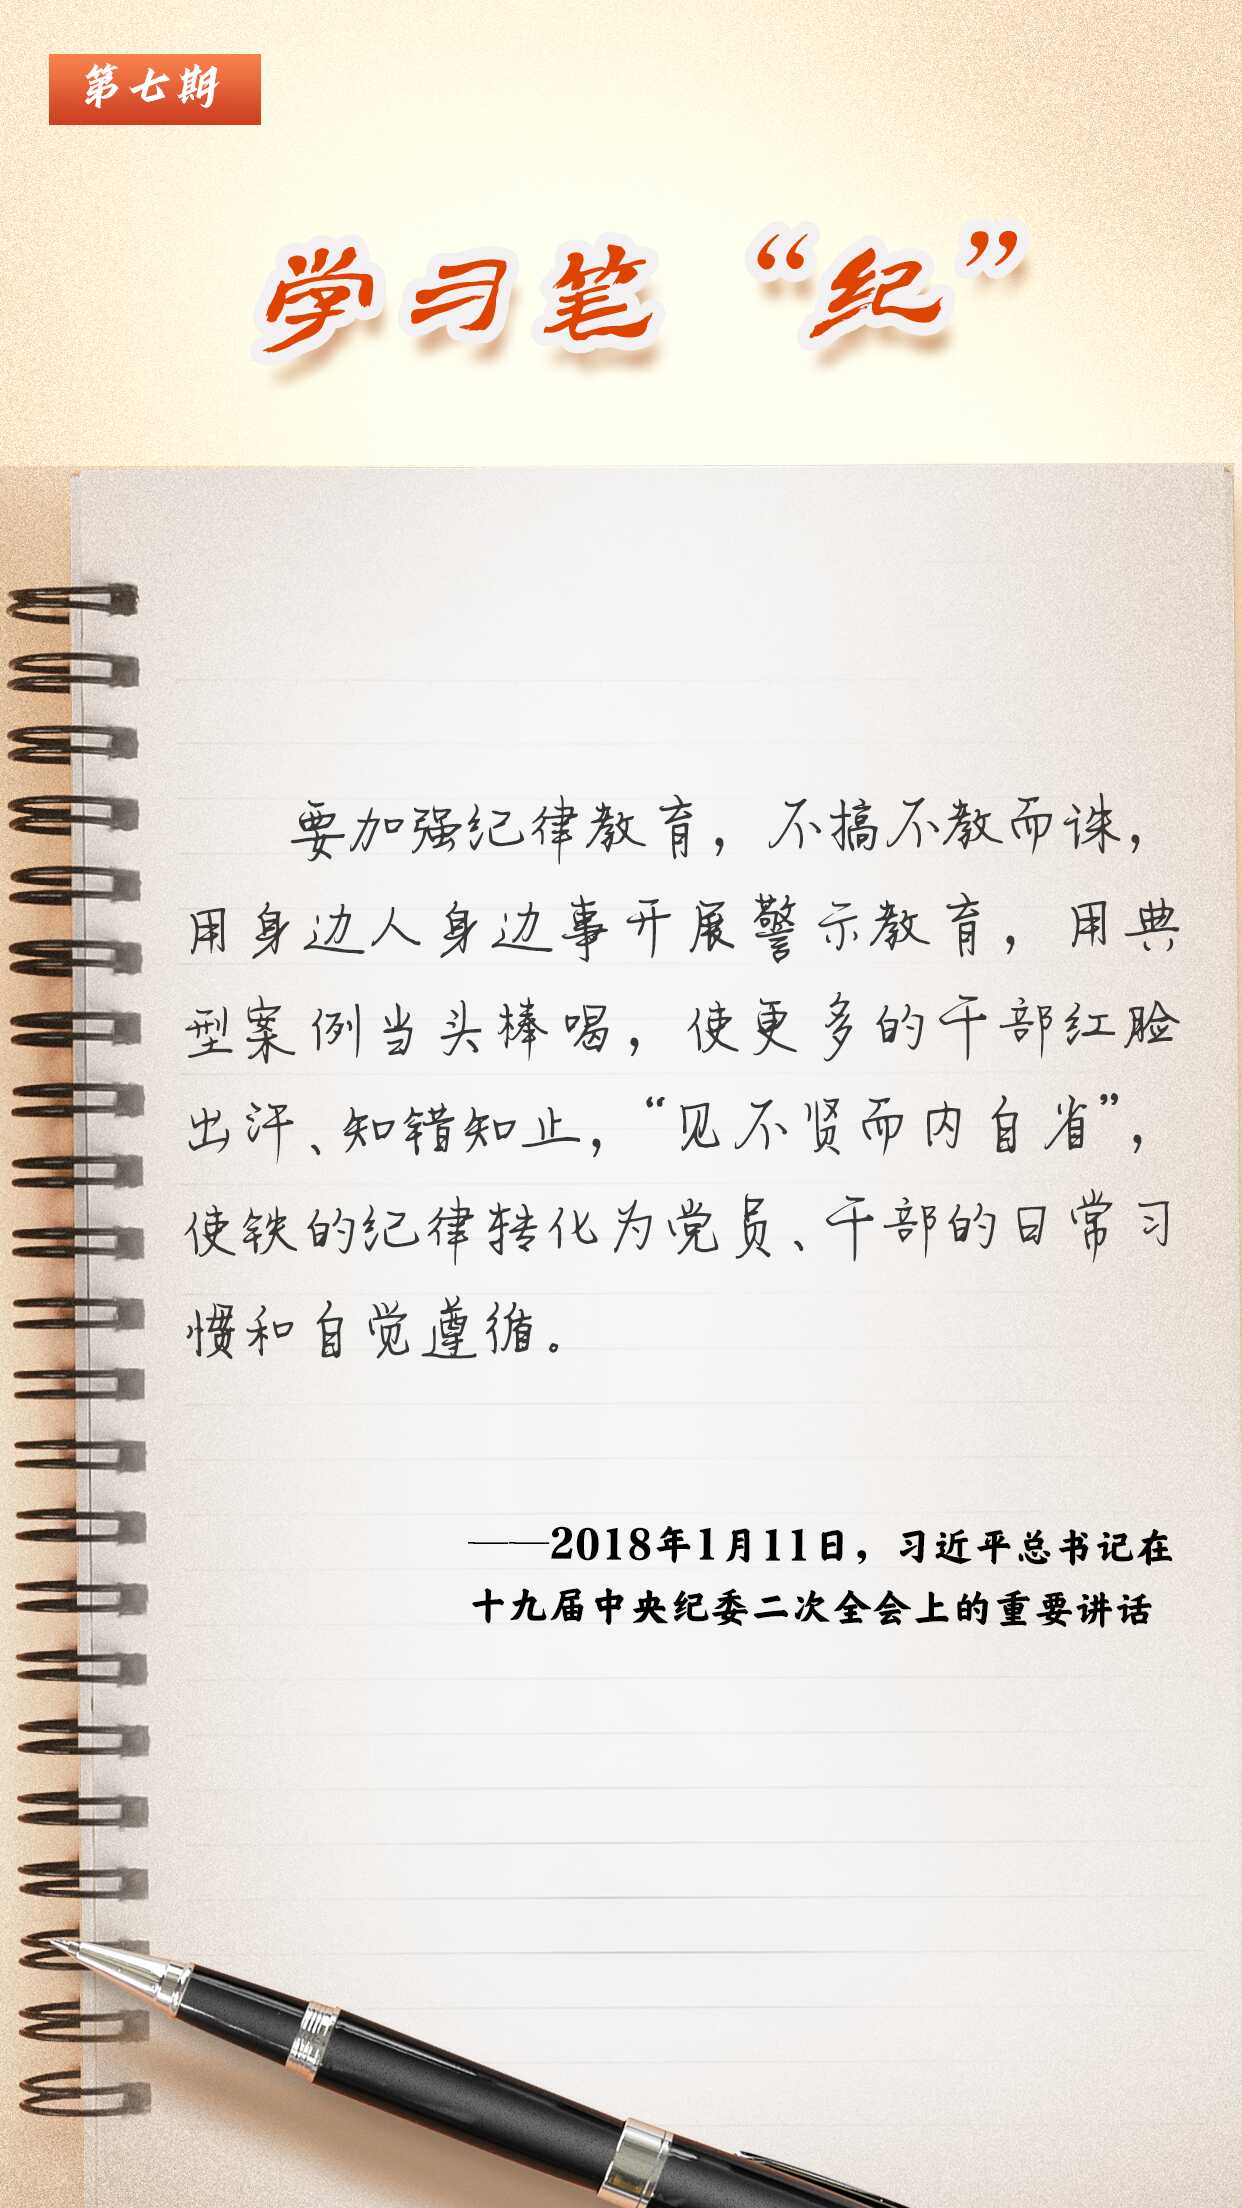 第七期
学习笔“纪”
要加强纪律教育，不搞不教而诛，
用身边人身边事开展警示教育，用典
型案例当头棒喝，使更多的干部红脸
出汗、知错知止，“见不贤而内自省”，
使铁的纪律转化为党员、干部的日常习
惯和自觉遵循。
——2018年1月11日，习近平总书记在
十九届中央纪委二次全会上的重要讲话